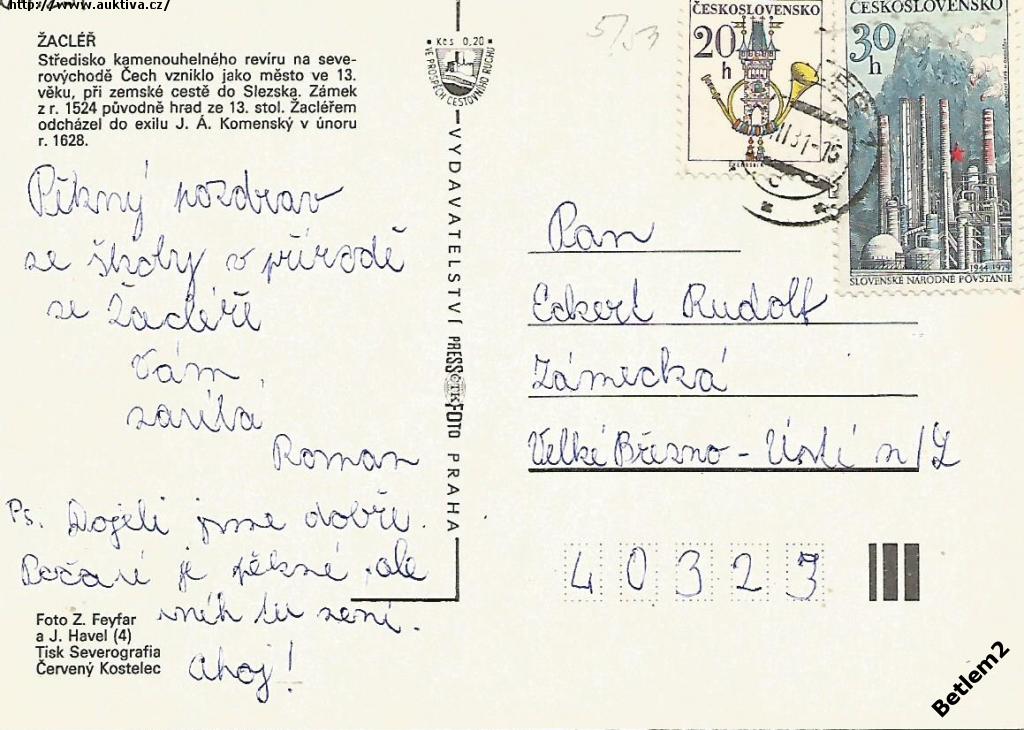 http://www.auktiva.cz/
ŽACLÉŘ
Středisko kamenouhelného revíru na seve-
rovýchodě Čech vzniklo jako město ve 13.
věku, při zemské cestě do Slezska. Zámek
z r. 1524 původně hrad ze 13. stol. Žacléřem
odcházel do exilu J. Á. Komenský v únoru
r. 1628.
Pěkný pozdrav
ze školy v přírodě
ze Žacléři
Vám
zasílá
Roman
Ps. Dojeli jsme dobře.
Počasí je pěkné, ale
sníh tu není.
Ahoj!
Foto Z. Feyfar
a J. Havel (4)
Tisk Severografia
Červený Kostelec
Kčs 0,20
VE PROSPĚCH CESTOVNÍHO RUCHU
VYDAVATELSTVÍ PRESSFOTO PRAHA
ČTK
5/51
ČESKOSLOVENSKO
20 h
ČESKOSLOVENSKO
30 h
1944-1979
SLOVENSKÉ NÁRODNÉ POVSTANIE
Pan
Eckert Rudolf
Zámecká
Velké Březno - Ústí n/L
40323
Betlem2